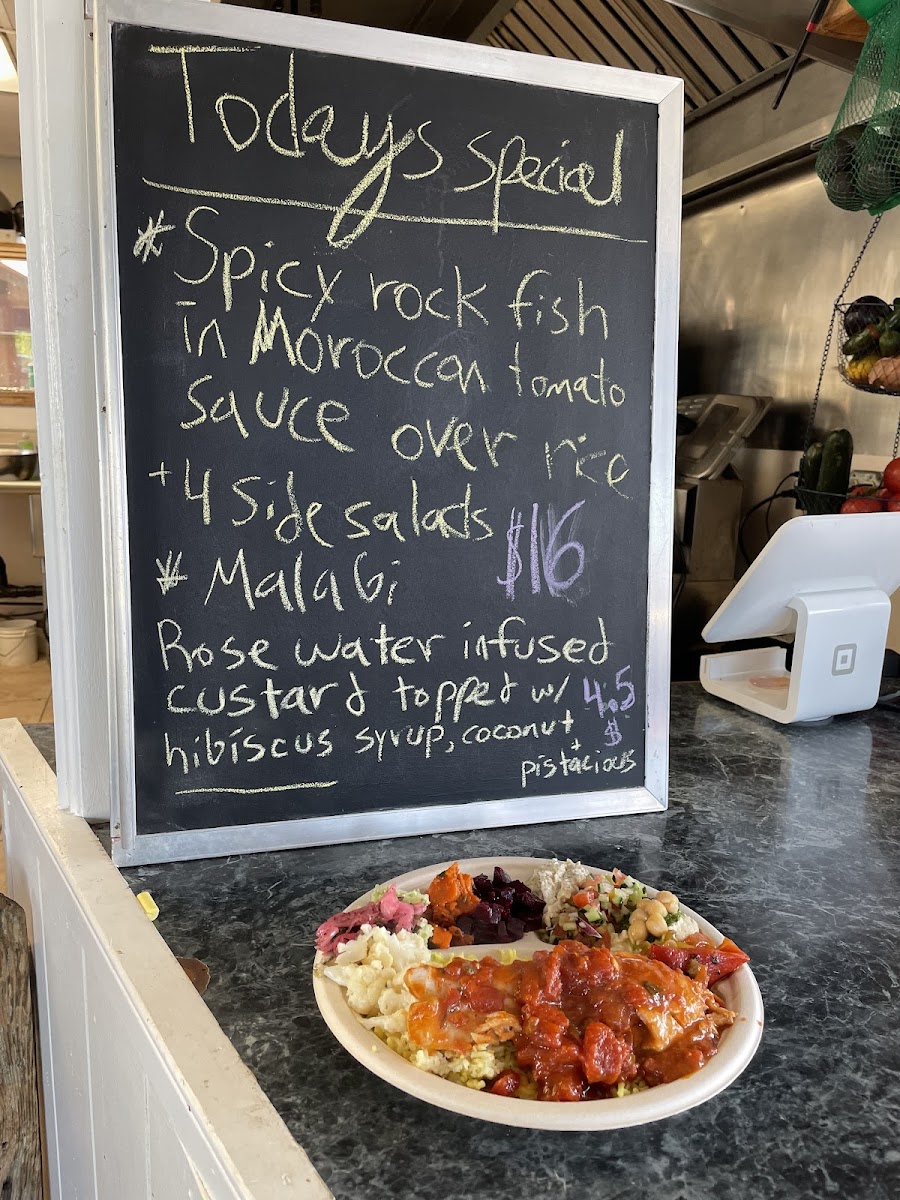 Todays special
* Spicy rock fish
in Moroccan tomato
sauce over rice
+ 4 side salads
$16
* Malabi
Rose water infused
custard topped w/
4.5
$
hibiscus syrup, coconut
+
pistacious